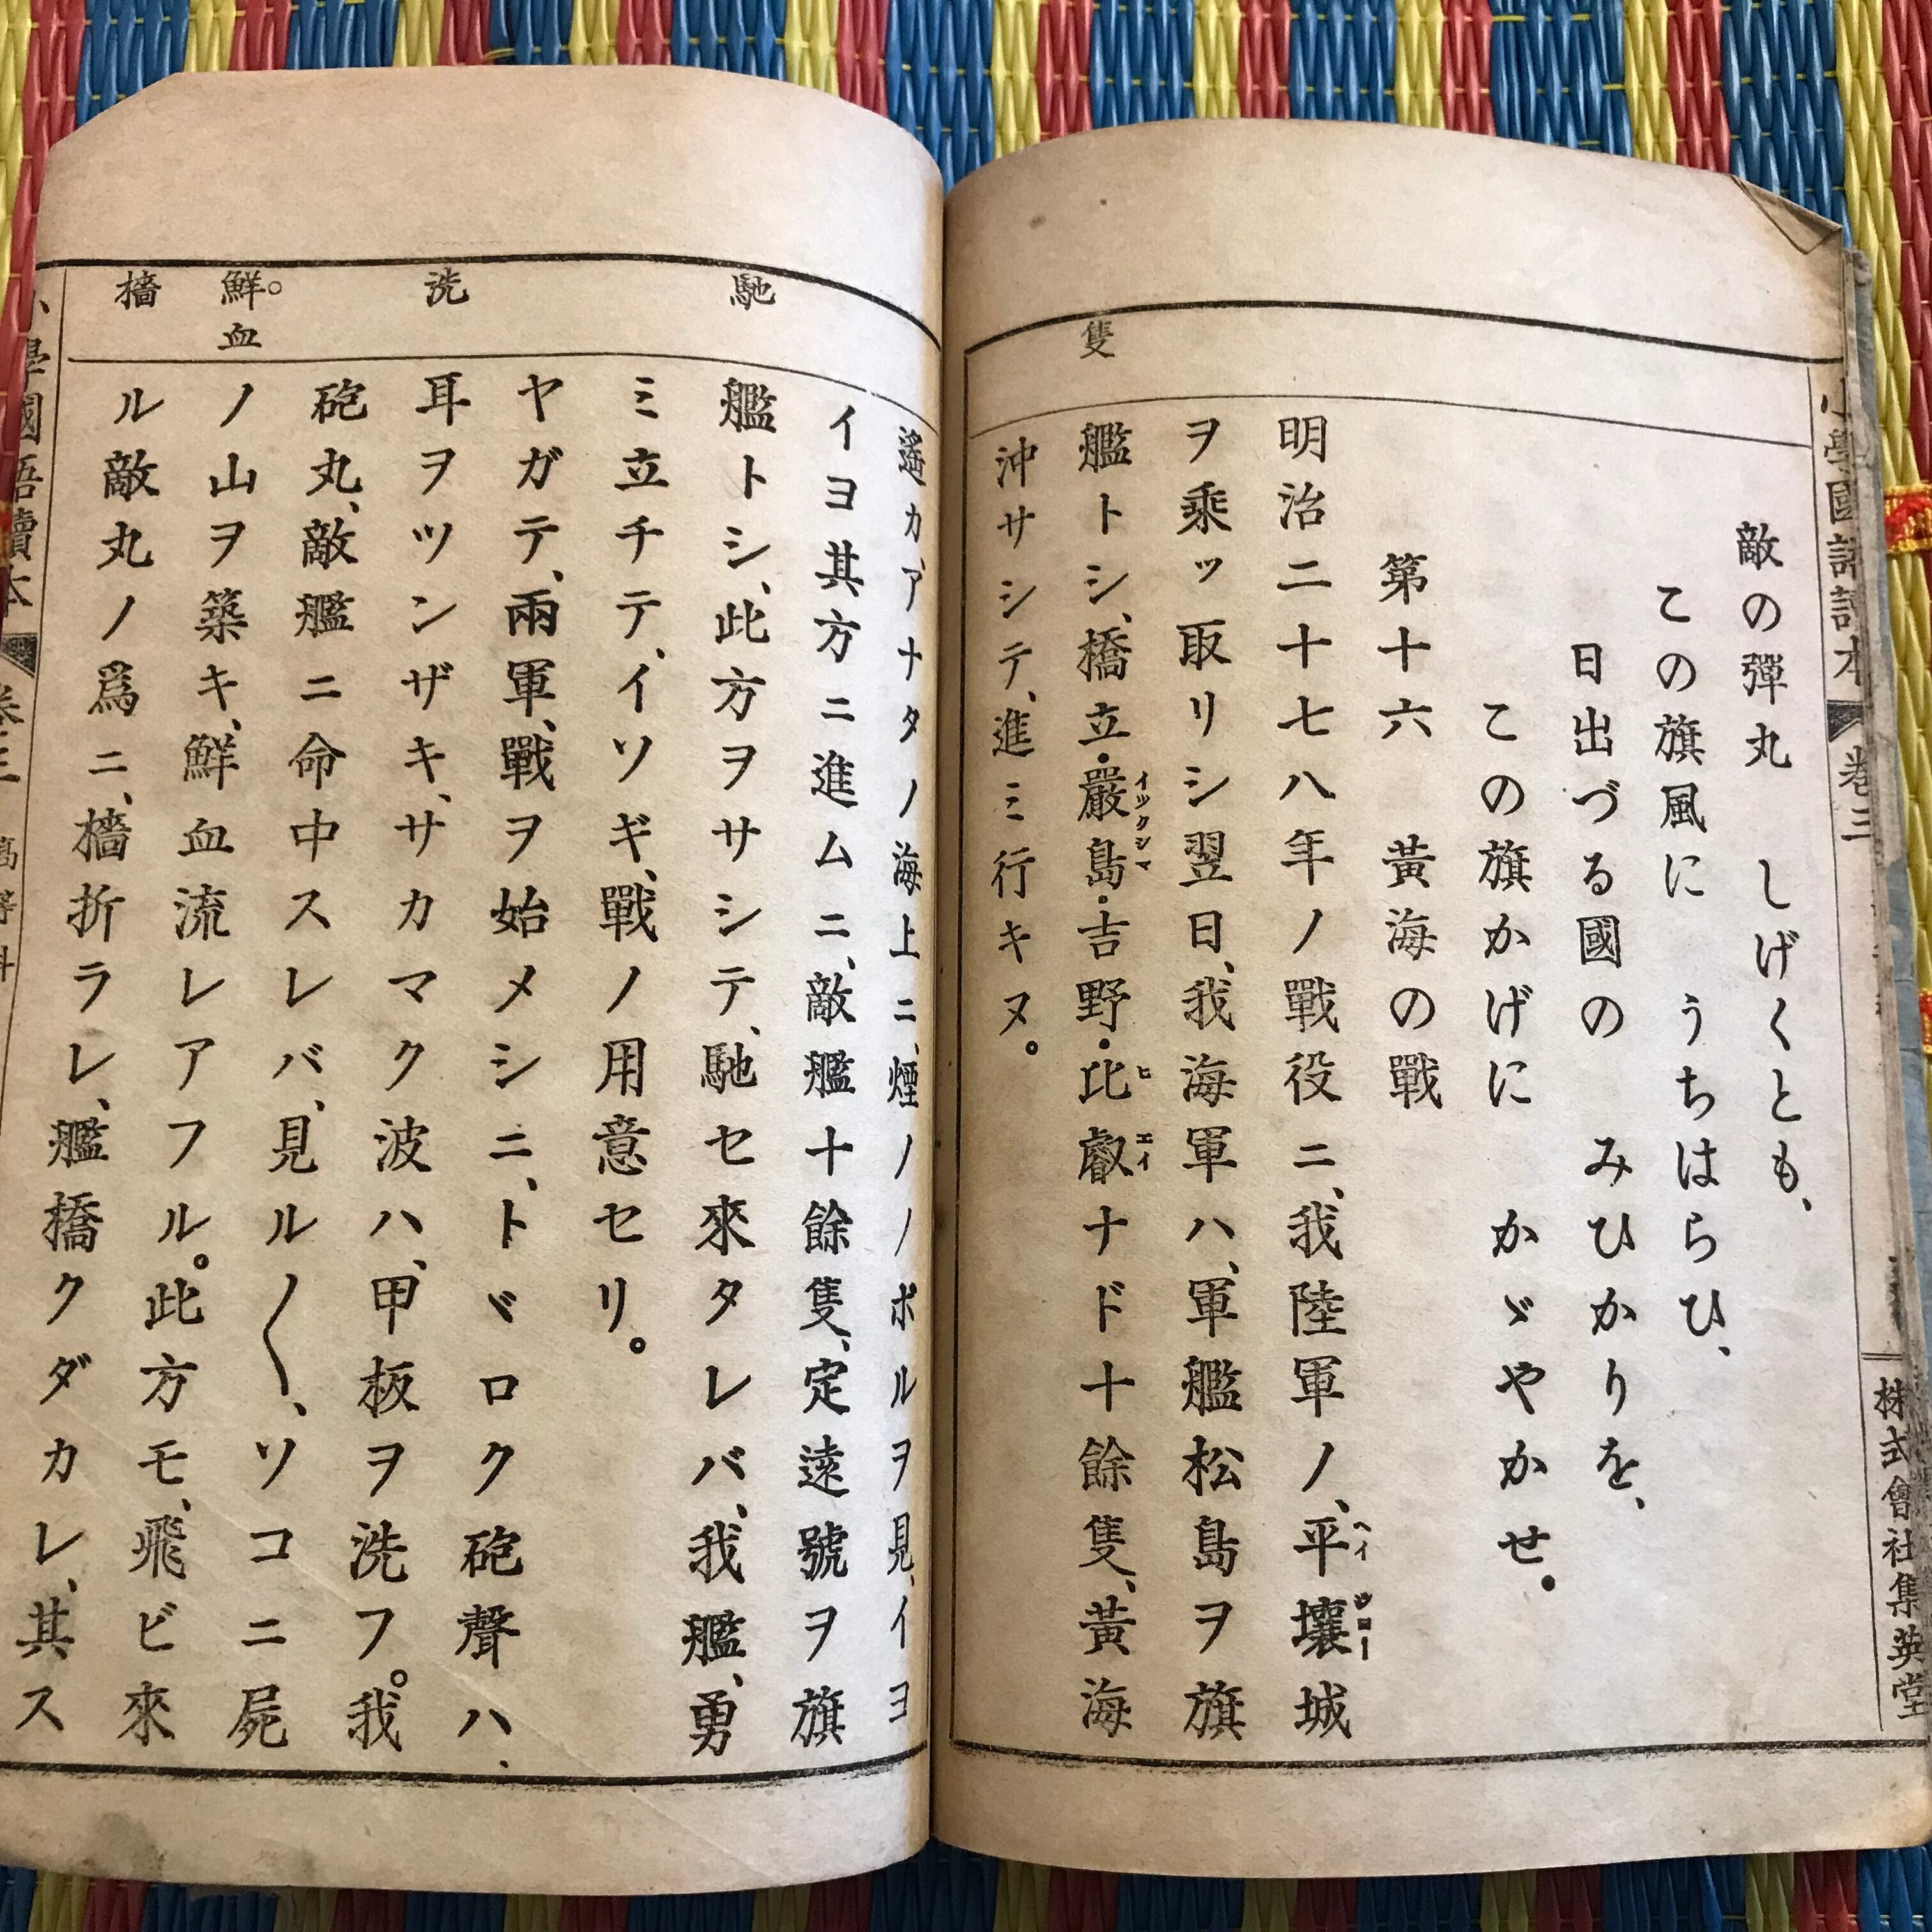 小學國語讀本 卷三
株式會社集英堂
敵の彈丸 しげくとも、
この旗風に うちはらひ、
日出づる國の みひかりを、
この旗かげに かゞやかせ。
第十六 黃海の戰
明治二十七八年ノ戰役ニ、我陸軍ノ、平壤城
ヘイ ジョー
ヲ乘ッ取リシ翌日、我海軍ハ、軍艦松島ヲ旗
隻
艦トシ、橋立・嚴島・吉野・比叡ナド十餘隻、黃海
イツクシマ ヒエイ
沖サシテ、進ミ行キヌ。
遙カ、アナタノ海上ニ、煙ノノボルヲ見、イヨ
イヨ其方ニ進ムニ、敵艦十餘隻、定遠號ヲ旗
馳
艦トシ、此方ヲサシテ、馳セ來タレバ、我艦、勇
ミ立チテ、イソギ、戰ノ用意セリ。
ヤガテ、兩軍、戰ヲ始メシニ、トヾロク砲聲ハ、
洗
耳ヲツンザキ、サカマク波ハ、甲板ヲ洗フ。我
砲丸、敵艦ニ命中スレバ、見ル〱、ソコニ屍
鮮血
ノ山ヲ築キ、鮮血流レアフル。此方モ、飛ビ來
檣
ル敵丸ノ爲ニ、檣折ラレ、艦橋クダカレ、其ス
小學國語讀本 卷三 高等科